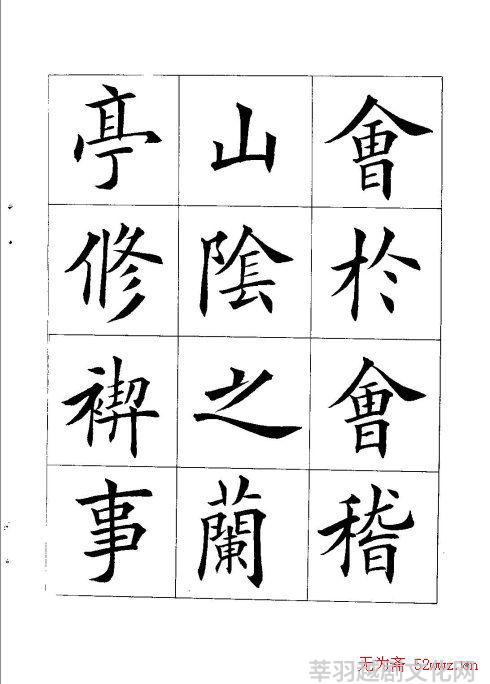 會於會稽
山陰之蘭
亭修禊事
无为斋 52wwz.cn
莘羽越剧文化网